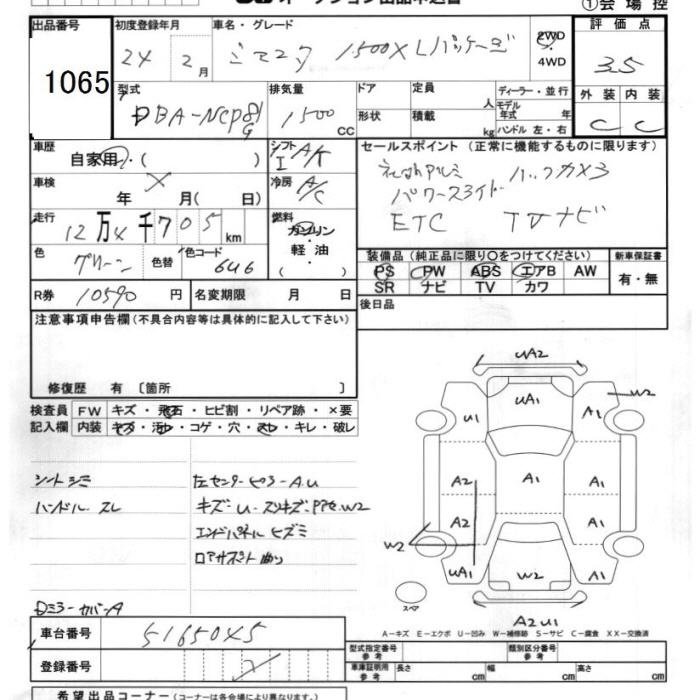 オークション出品申込書
①会場控
出品番号 初度登録年月 車名・グレード 評価点
1065 24 2月 シエンタ 1500X Lパッケージ 2WD 3.5
4WD
型式 排気量 ドア 定員 ディーラー・並行 外装 内装
DBA-NCP81G 1500 CC 形状 積載 人 モデル年式 年 C C
kg ハンドル 左・右
車歴 シフト セールスポイント (正常に機能するものに限ります)
自家用・( ) I A/K
車検 × 冷房 A/C バックカメラ
年 月( 日) パワースライド
走行 12万4千705 km 燃料 ガソリン ETC TVナビ
軽油
( )
色 グリーン 色替 色コード 6U6
装備品(純正品に限り○をつけてください) 新車保証書
PS PW ABS エアB AW 有・無
SR ナビ TV カワ
R券 10590 円 名変期限 月 日 後日品
注意事項申告欄(不具合内容等は具体的に記入して下さい)
修復歴 有 [箇所 ]
検査員 FW キズ・飛石・ヒビ割・リペア跡・×要
記入欄 内装 キズ・汚れ・コゲ・穴・スレ・キレ・破レ
シートシミ 左センターピラーA.U
ハンドル スレ キズ・U・スリキズ・アセ W2
エンドパネル ヒズミ
ロアサポート曲り
DミラーカバーA
UA2
UA1 W2
U1 A1
A2 A1 A1
A2 A1
W2
UA1 W2 A1
スペア
A2U1
A−キズ E−エクボ U−凹み W−補修跡 S−サビ C−腐食 XX−交換済
車台番号 5165045
登録番号
型式指定番号 参考 類別区分番号 参考
車庫証明用 参考 長さ cm 幅 cm 高さ cm
希望出品コーナー (コーナーは各会場により異なります。)